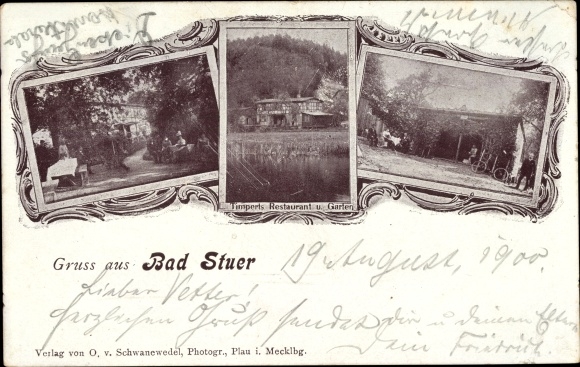 Timperts Restaurant u. Garten
Gruss aus Bad Stuer
19. August, 1900.
Lieber Vetter!
Herzlichen Gruß sendet dir u deinen Eltern
Dein Friedrich.
Verlag von O. v. Schwanewedel, Photogr., Plau i. Mecklbg.